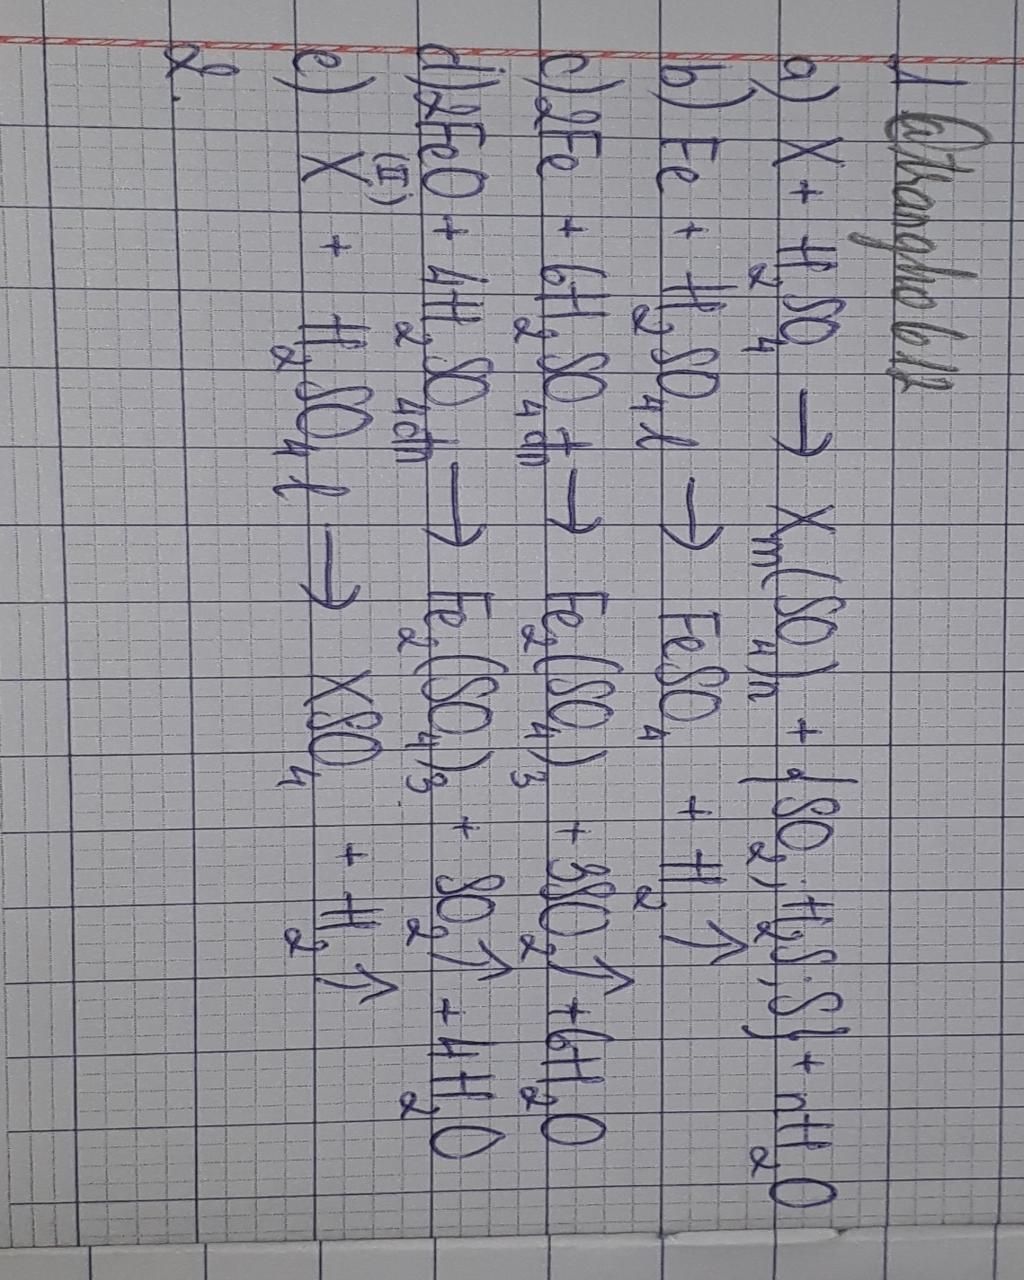 1
a) X + H₂SO₄ → Xm(SO₄)n + {SO₂; H₂S; S} + nH₂O
b) Fe + H₂SO₄ l → FeSO₄ + H₂↑
c) 2Fe + 6H₂SO₄ đn → Fe₂(SO₄)₃ + 3SO₂↑ + 6H₂O
d) 2FeO + 4H₂SO₄ đn → Fe₂(SO₄)₃ + SO₂↑ + 4H₂O
e) X (II) + H₂SO₄ l → XSO₄ + H₂↑
2.